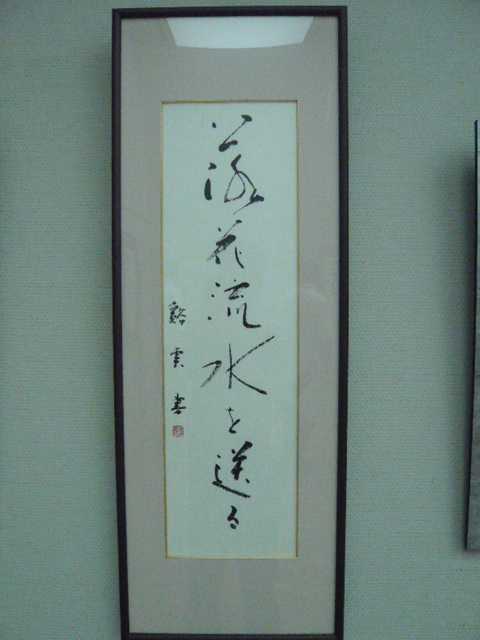 落花流水を送る
谿雲書